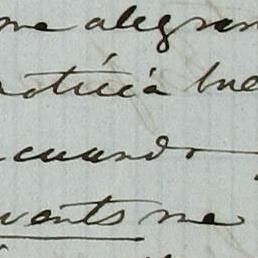 me alegran
noticia bue
cuando
vents me